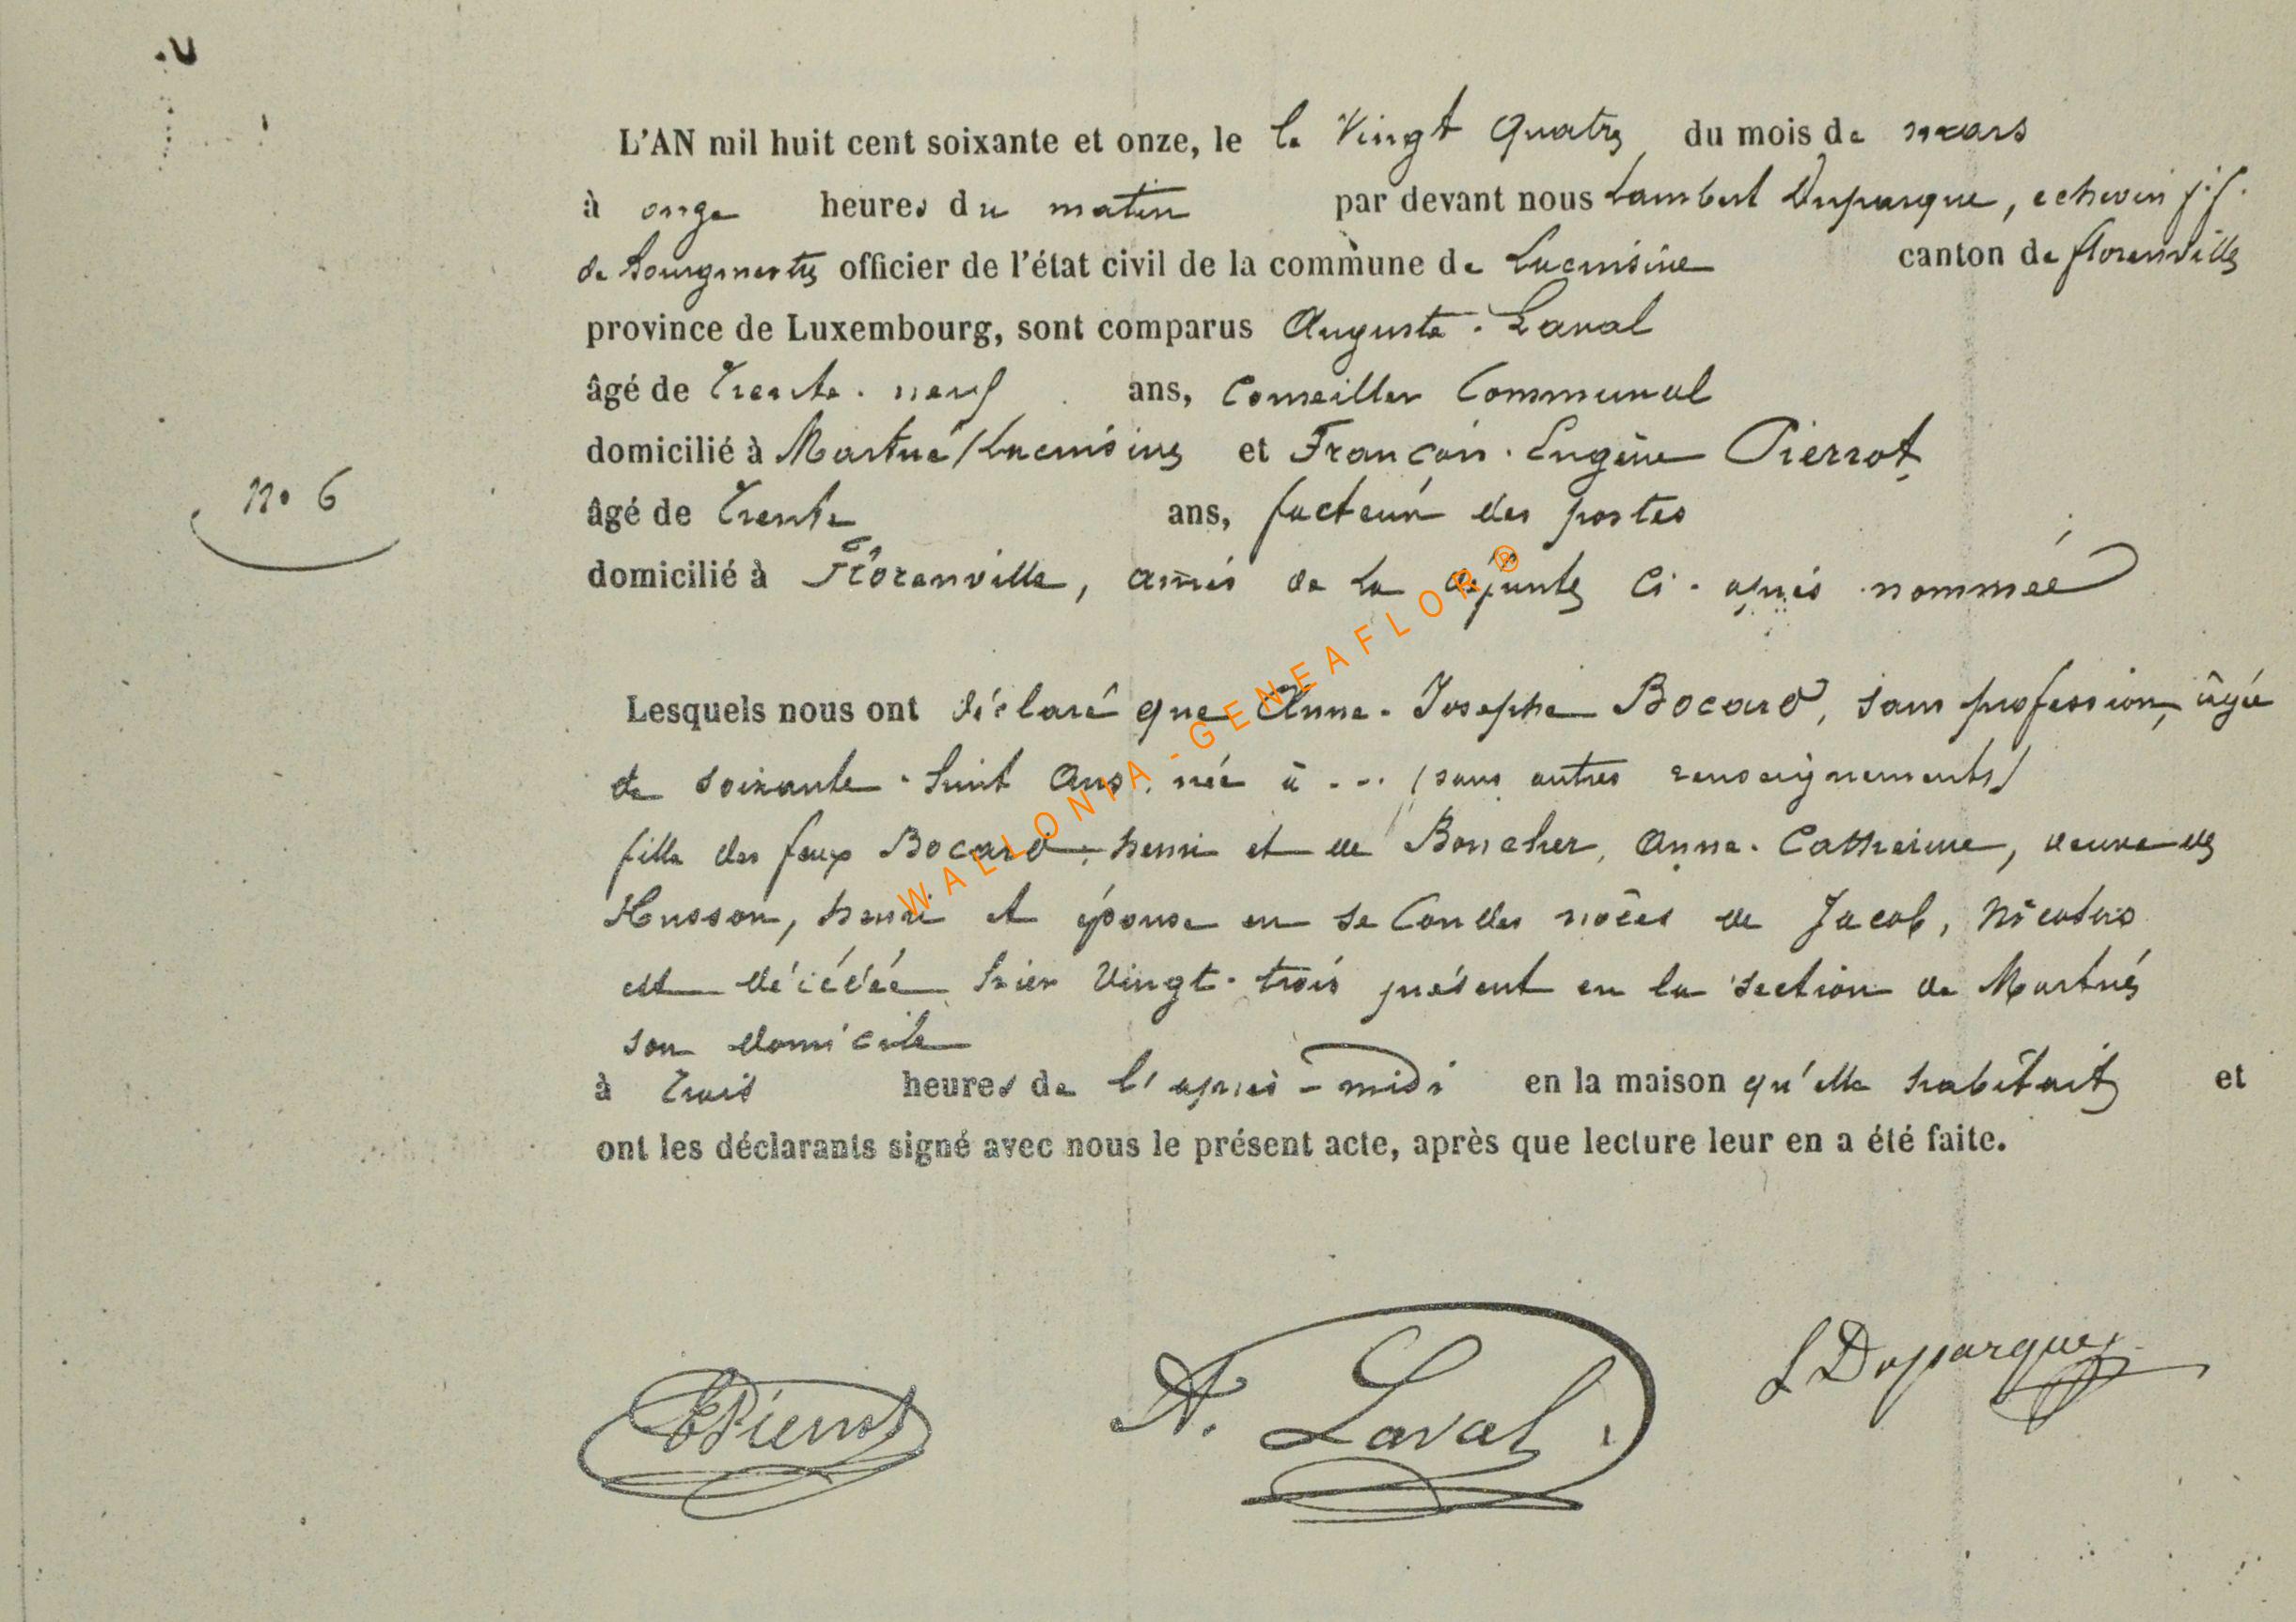 L'AN mil huit cent soixante et onze, le le Vingt Quatre du mois de mars
à onze heures du matin par devant nous Lambert Duparque, echevin f.f.
de bourgmestre officier de l'état civil de la commune de Lacuisine canton de florenville
province de Luxembourg, sont comparus Auguste . Laval
âgé de Trente . neuf ans, Conseiller Communal
domicilié à Martué / Lacuisine et François . Eugène Pierrot
âgé de Trente ans, facteur des postes
domicilié à Florenville, amis de la défunte Ci - après nommée
n° 6
Lesquels nous ont déclaré que Anne - Josephe Bocard, sans profession, âgée
de soixante - huit Ans, née à ... (sans autres renseignements)
fille des feux Bocard, henri et de Boucher, Anne - Catherine, veuve de
Husson, henri et épouse en seCondes nôces de Jacob, Nicolas
est décédée hier Vingt - trois présent en la section de Martué
son domicile
à trois heures de l'après - midi en la maison qu'elle habitait et
ont les déclarants signé avec nous le présent acte, après que lecture leur en a été faite.
EPierrot A. Laval L Duparque
WALLONIA - GENEAFLOR ®